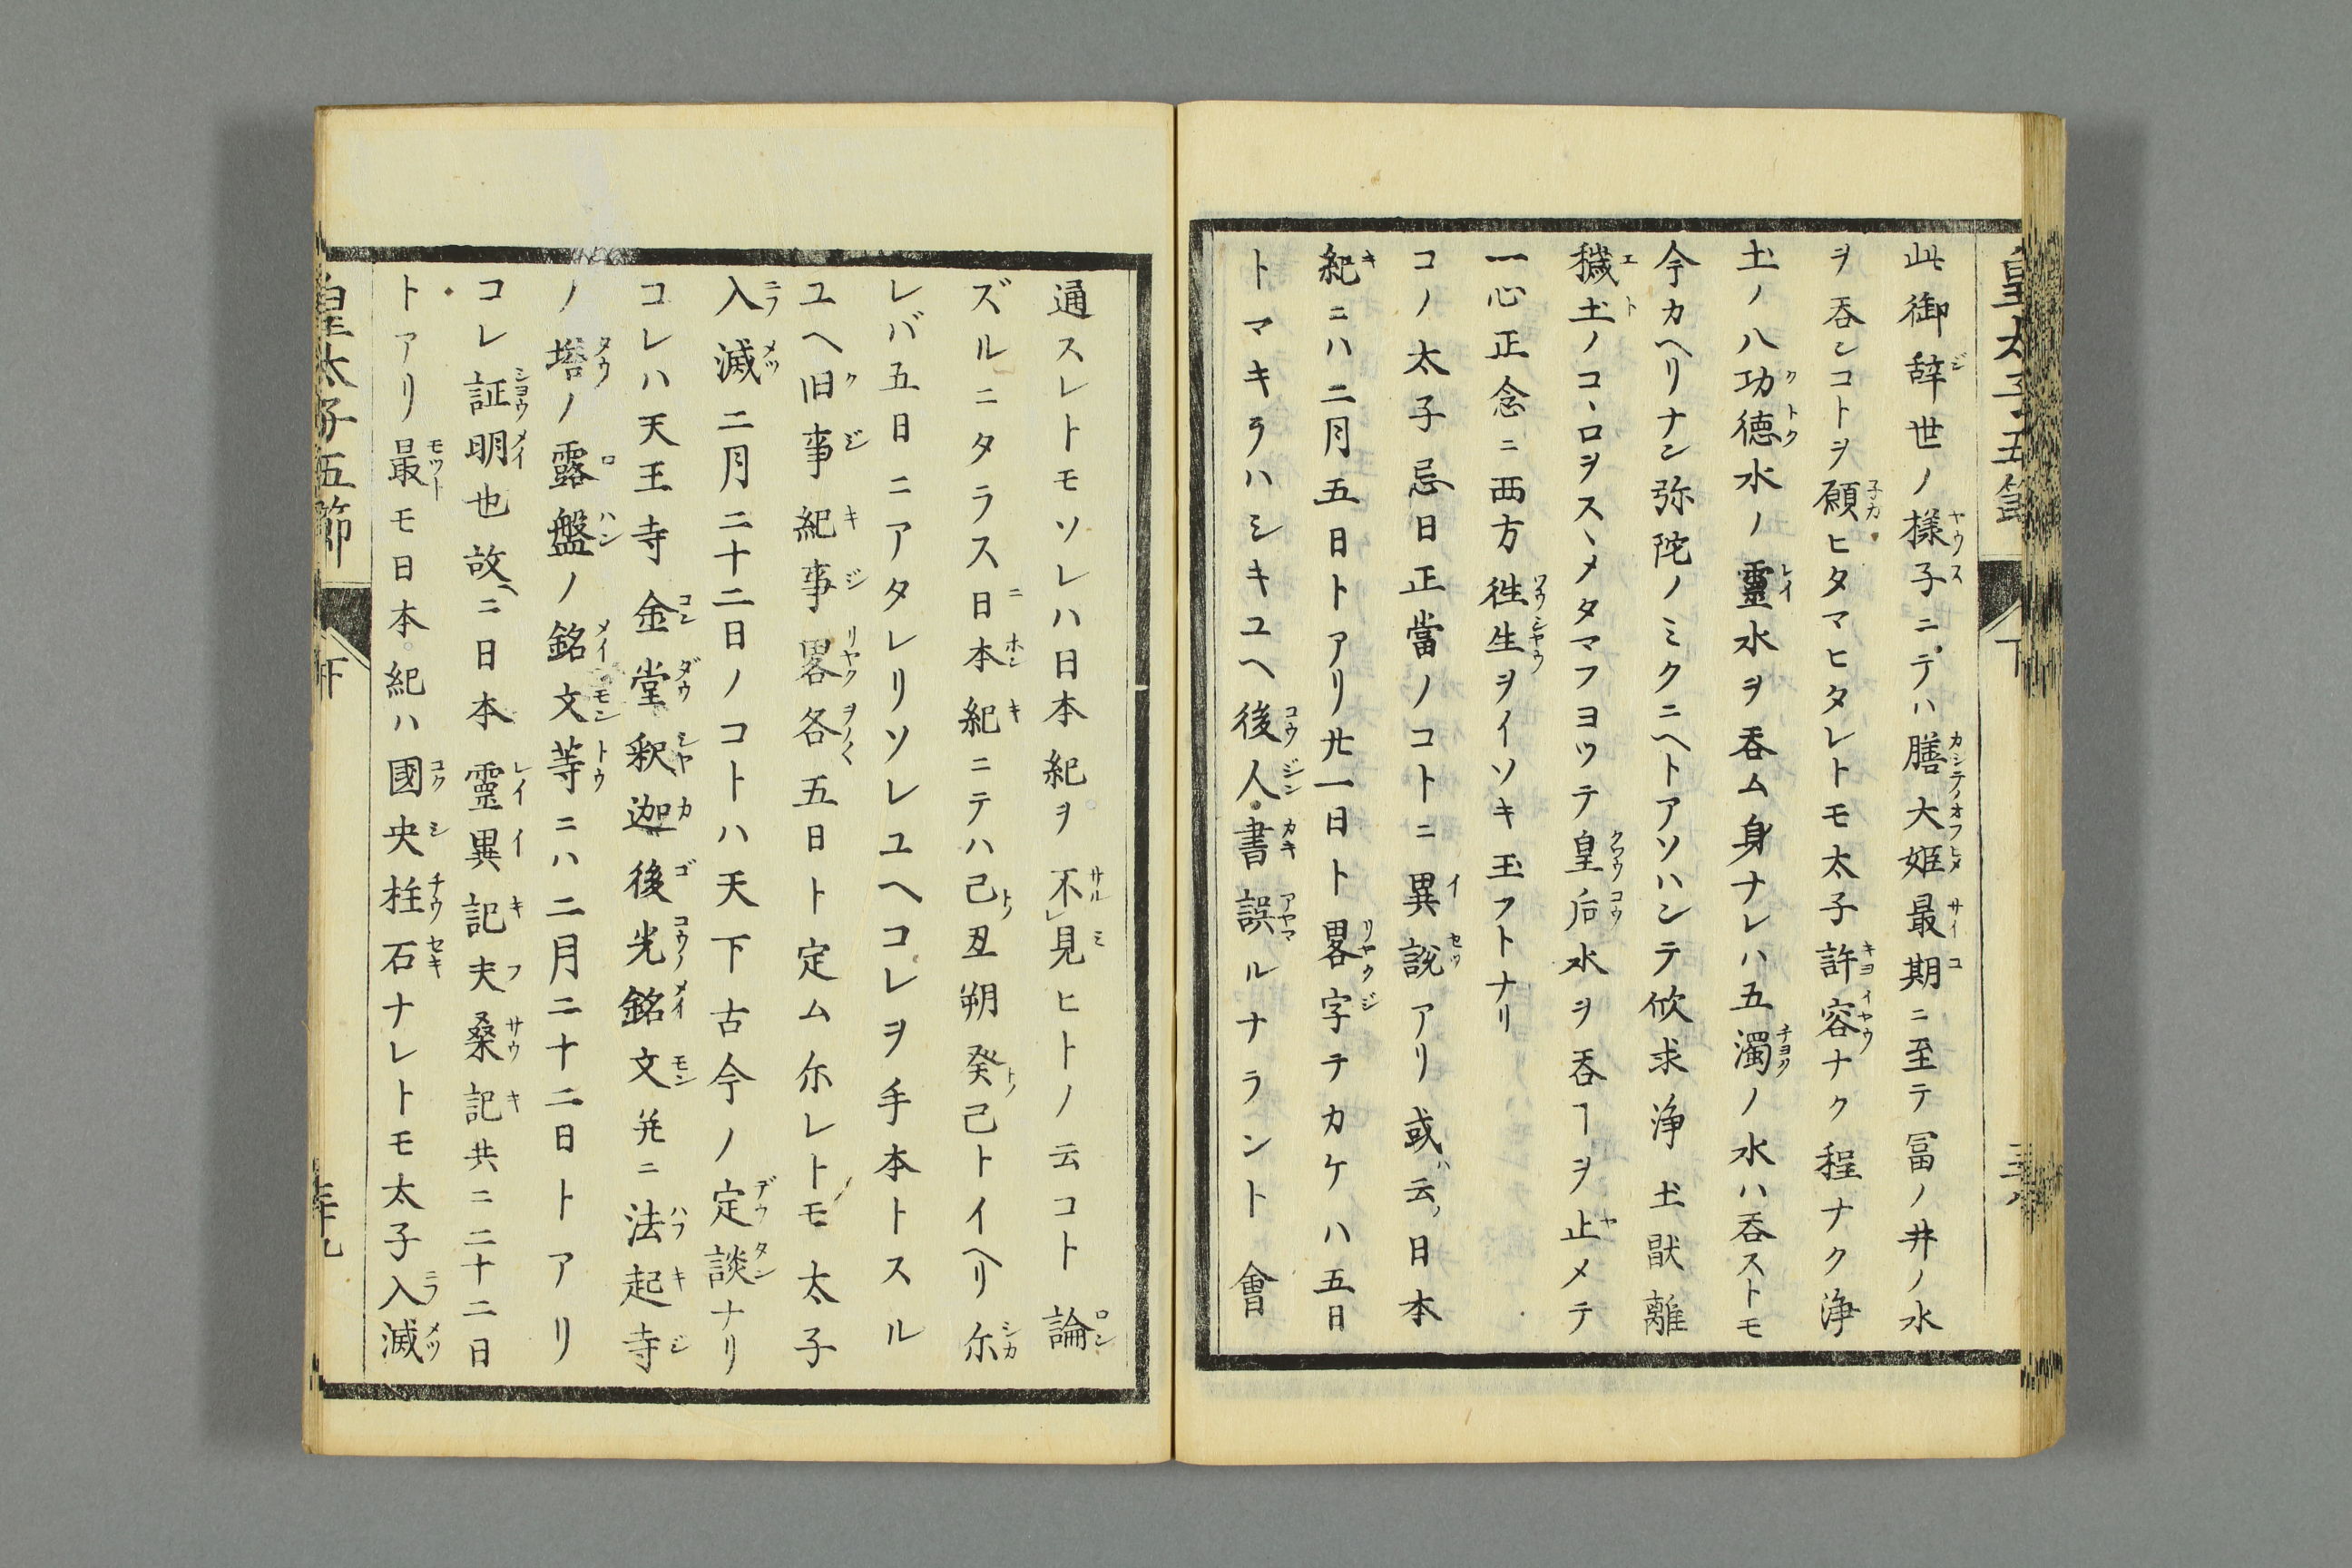 皇太子五節
下
此御辞世ノ様子ニテハ膳大姫最期ニ至テ冨ノ井ノ水
ヲ呑ンコトヲ願ヒタマヒタレトモ太子許容ナク程ナク浄
土ノ八功徳水ノ靈水ヲ呑ム身ナレハ五濁ノ水ハ呑ストモ
今カヘリナン弥陀ノミクニヘトアソハンテ欣求浄土厭離
穢土ノコヽロヲスヽメタマフヨツテ皇后水ヲ呑ヿヲ止メテ
一心正念ニ西方徃生ヲイソキ玉フトナリ
コノ太子忌日正當ノコトニ異説アリ或ハ云ク日本
紀ニハ二月五日トアリ廿一日ト畧字テカケハ五日
トマキラハシキユヘ後人書誤ルナラント會
通スレトモソレハ日本紀ヲ不見ヒトノ云コト論
ズルニタラス日本紀ニテハ己丑朔癸己トイヘリ尓
レバ五日ニアタレリソレユヘコレヲ手本トスル
ユヘ旧事紀事畧各五日ト定ム尓レトモ太子
入滅二月二十二日ノコトハ天下古今ノ定談ナリ
コレハ天王寺金堂釈迦後光銘文并ニ法起寺
ノ塔ノ露盤ノ銘文等ニハ二月二十二日トアリ
コレ証明也故ニ日本靈異記夫桑記共ニ二十二日
トアリ最モ日本紀ハ國史柱石ナレトモ太子入滅
皇太子五節
下